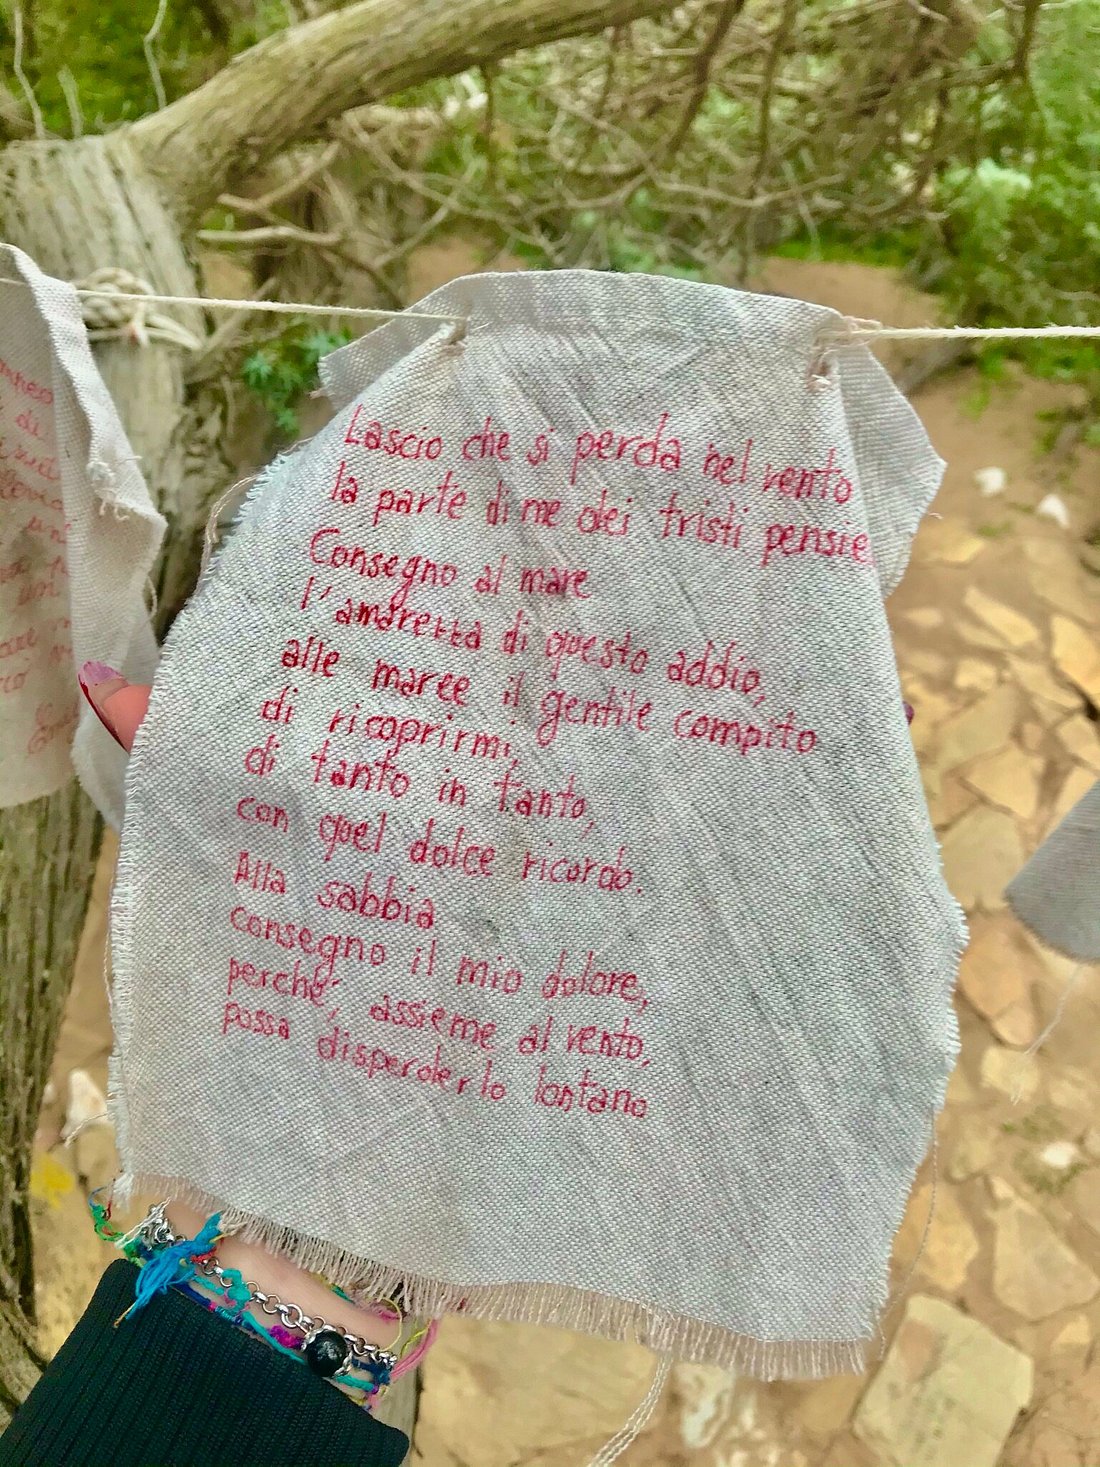 Lascio che si perda nel vento
la parte di me dei tristi pensie
Consegno al mare
l'amarezza di questo addio,
alle maree il gentile compito
di ricoprirmi,
di tanto in tanto,
con quel dolce ricordo.
Alla sabbia
consegno il mio dolore,
perché, assieme al vento,
possa disperderlo lontano